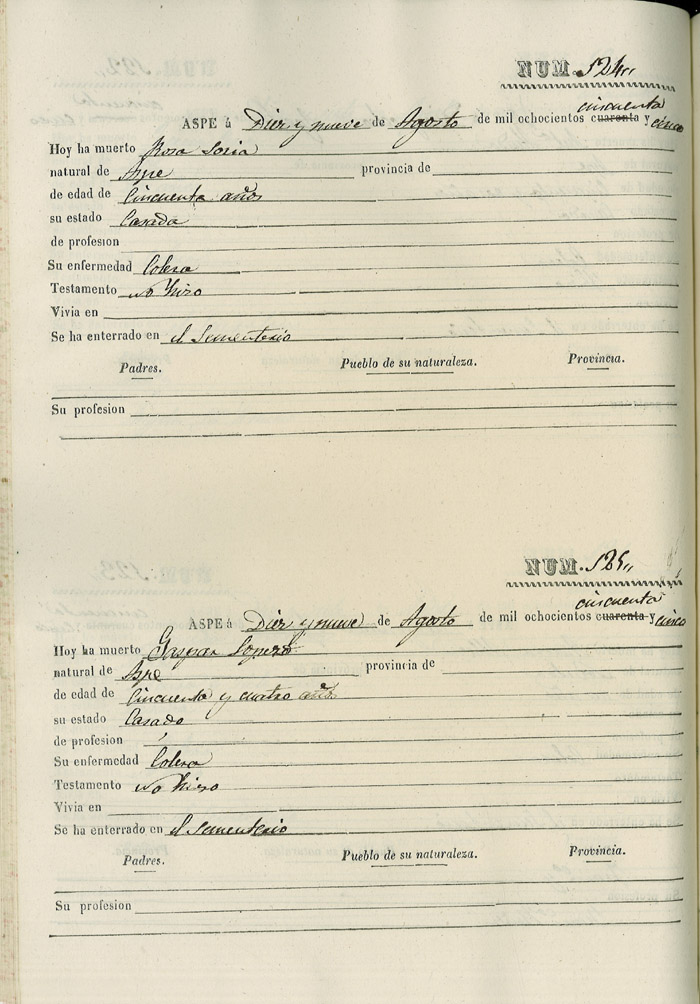 NUM. 524,,
cincuenta
ASPE á Diez y nueve de Agosto de mil ochocientos cuarenta y cinco
Hoy ha muerto Rosa Soria
natural de Aspe provincia de
de edad de Cincuenta años
su estado Casada
de profesion
Su enfermedad Colera
Testamento no hizo
Vivia en
Se ha enterrado en el Sementerio
Padres. Pueblo de su naturaleza. Provincia.
Su profesion
NUM. 525,,
cincuenta
ASPE á Diez y nueve de Agosto de mil ochocientos cuarenta y cinco
Hoy ha muerto Gaspar
natural de Aspe provincia de
de edad de Cincuenta y cuatro años
su estado Casado
de profesion
Su enfermedad Colera
Testamento no hizo
Vivia en
Se ha enterrado en el Sementerio
Padres. Pueblo de su naturaleza. Provincia.
Su profesion